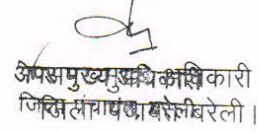 अपर मुख्य अधिकारी
जिला पंचायत बरेली ।